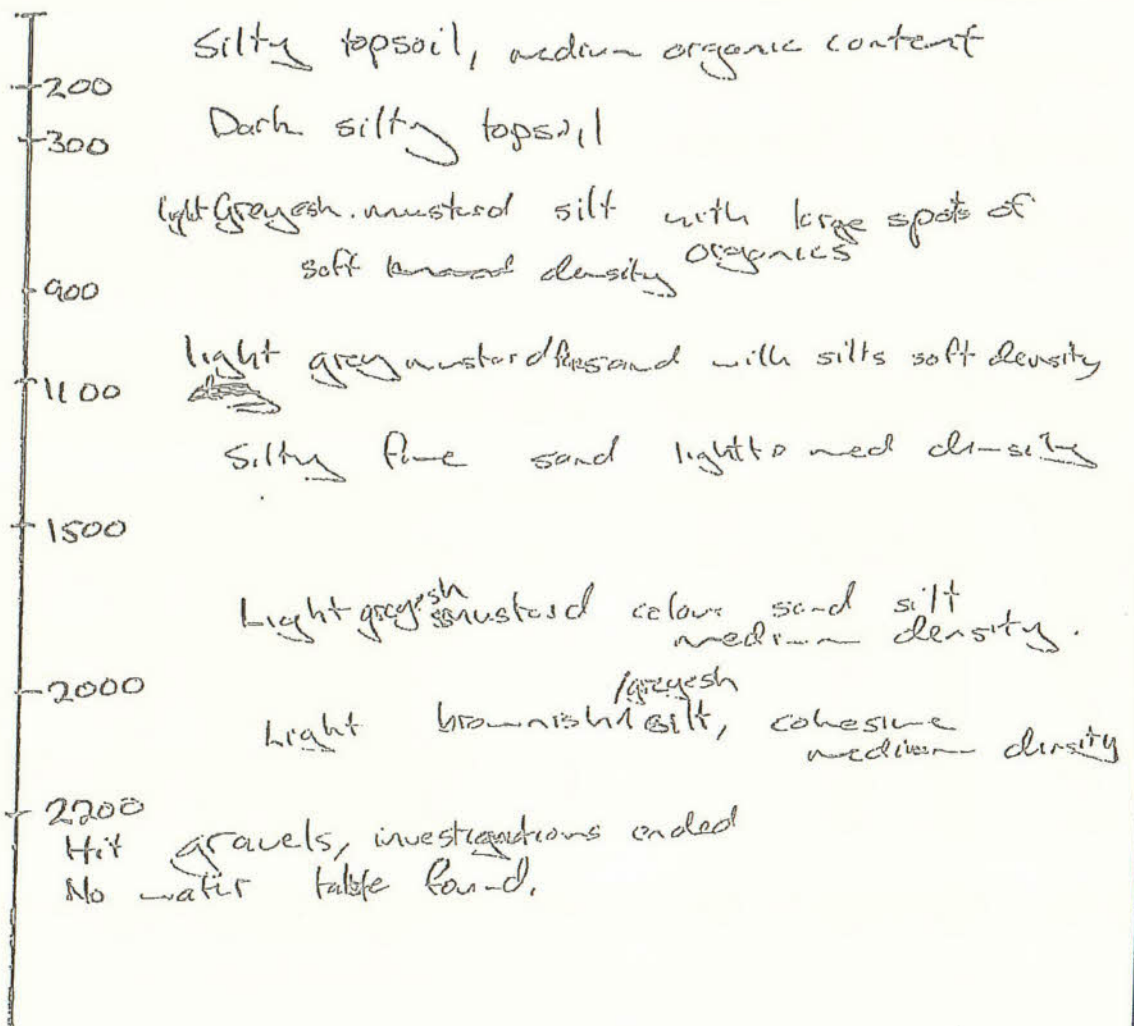 Silty topsoil, medium organic content
200
Dark silty topsoil
300
light Greyesh mustard silt with large spots of
soft density organics
900
light grey mustard sand with silts soft density
1100
Silty fine sand light to med density
1500
Light greyesh mustard colour sand silt
medium density.
2000
/greyesh
Light brownish silt, cohesive
medium density
2200
Hit gravels, investigations ended
No water table found.